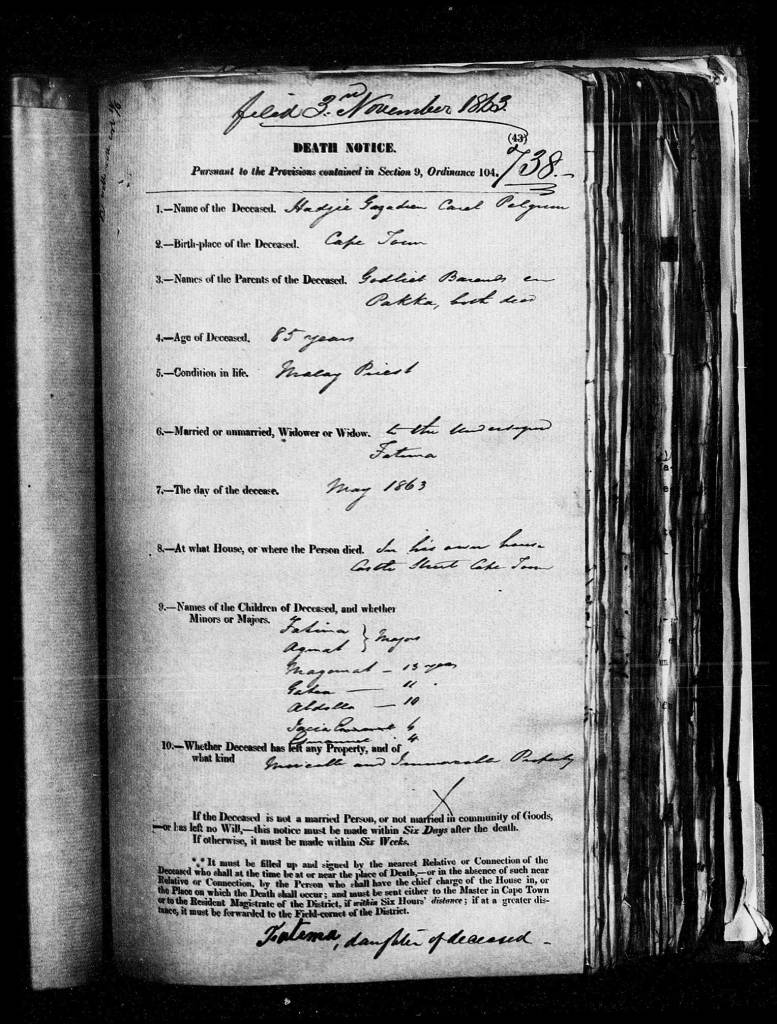 filed 3rd November 1863.
(43)
DEATH NOTICE.
Pursuant to the Provisions contained in Section 9, Ordinance 104.
738.
1.—Name of the Deceased. Hadjie Gazadien Carel Pelgrim
2.—Birth-place of the Deceased. Cape Town
3.—Names of the Parents of the Deceased. Godlieb Barends en
Pakka, both dead
4.—Age of Deceased. 85 years
5.—Condition in life. Malay Priest
6.—Married or unmarried, Widower or Widow. to the Undersigned
Fatima
7.—The day of the decease. May 1863
8.—At what House, or where the Person died. In his own house
Castle Street Cape Town
9.—Names of the Children of Deceased, and whether
Minors or Majors.
Fatima
Agmat } Majors
Magomat – 13 years
– 11
Abdolla – 10
6
4
10.—Whether Deceased has left any Property, and of
what kind Moveable and Immoveable Property
If the Deceased is not a married Person, or not married in community of Goods,
—or has left no Will,—this notice must be made within Six Days after the death.
If otherwise, it must be made within Six Weeks.
It must be filled up and signed by the nearest Relative or Connection of the
Deceased who shall at the time be at or near the place of Death,—or in the absence of such near
Relative or Connection, by the Person who shall have the chief charge of the House in, or
the Place on which the Death shall occur; and must be sent either to the Master in Cape Town
or to the Resident Magistrate of the District, if within Six Hours' distance; if at a greater dis-
tance, it must be forwarded to the Field-cornet of the District.
Fatema, daughter of deceased –